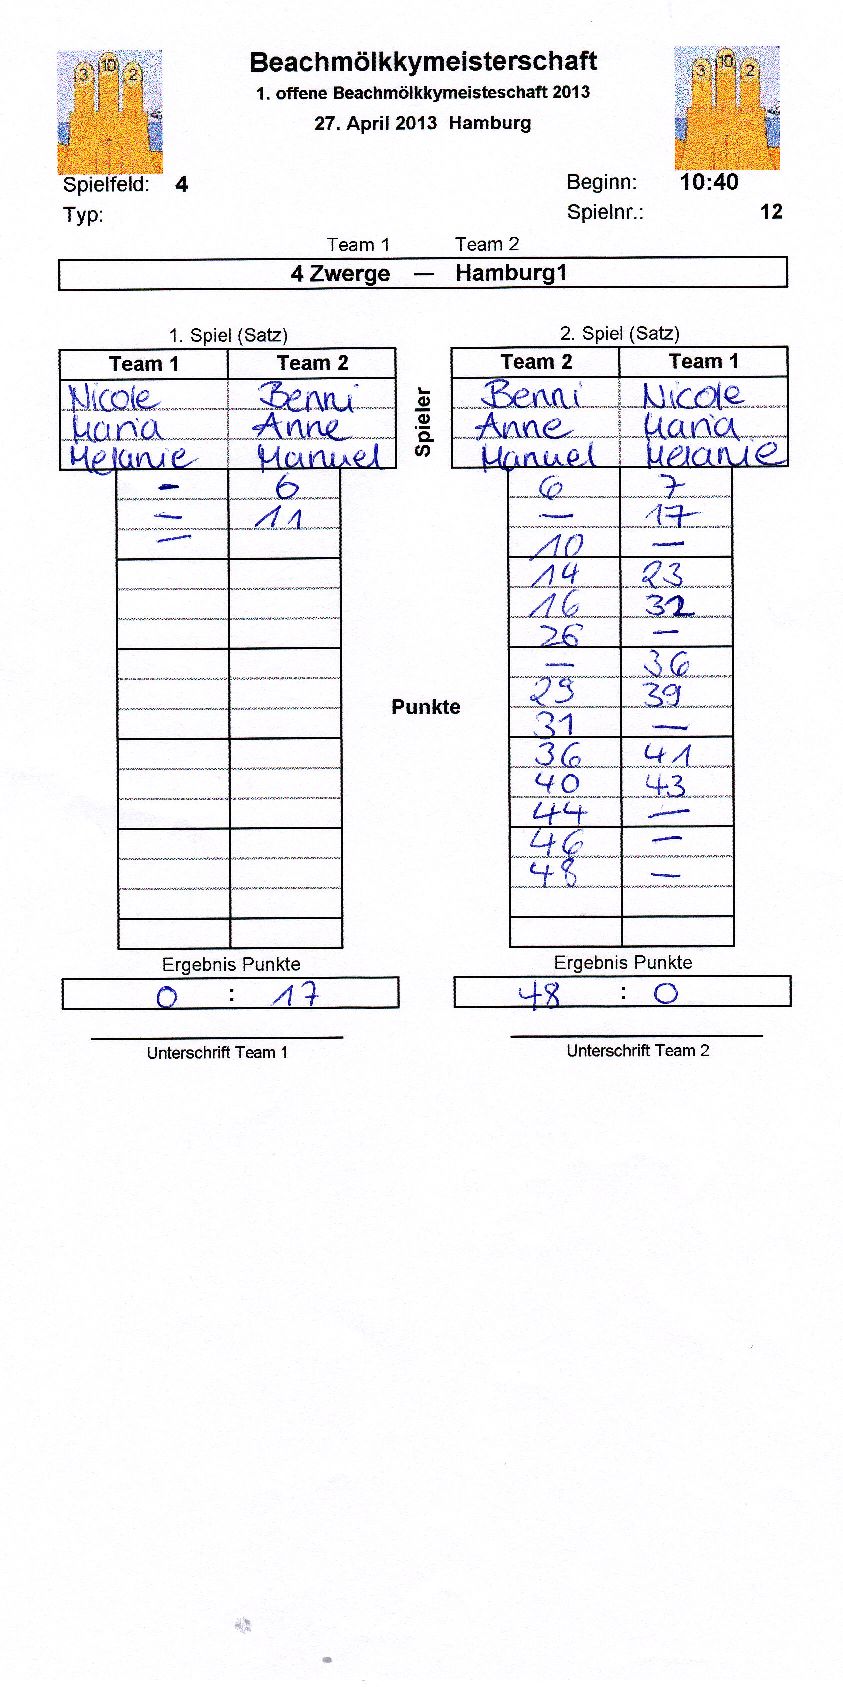 3 10 2
3 10 2
Beachmölkkymeisterschaft
1. offene Beachmölkkymeisteschaft 2013
27. April 2013 Hamburg
Spielfeld: 4
Beginn: 10:40
Typ:
Spielnr.: 12
Team 1 Team 2
4 Zwerge — Hamburg1
1. Spiel (Satz)
Team 1 Team 2
Nicole Benni
Maria Anne
Melanie Manuel
- 6
— 11
—
Ergebnis Punkte
0 : 17
Unterschrift Team 1
Spieler
Punkte
2. Spiel (Satz)
Team 2 Team 1
Benni Nicole
Anne Maria
Manuel Melanie
6 7
— 17
10 —
14 23
16 32
26 —
— 36
29 39
31 —
36 41
40 43
44 —
46 —
48 —
Ergebnis Punkte
48 : 0
Unterschrift Team 2